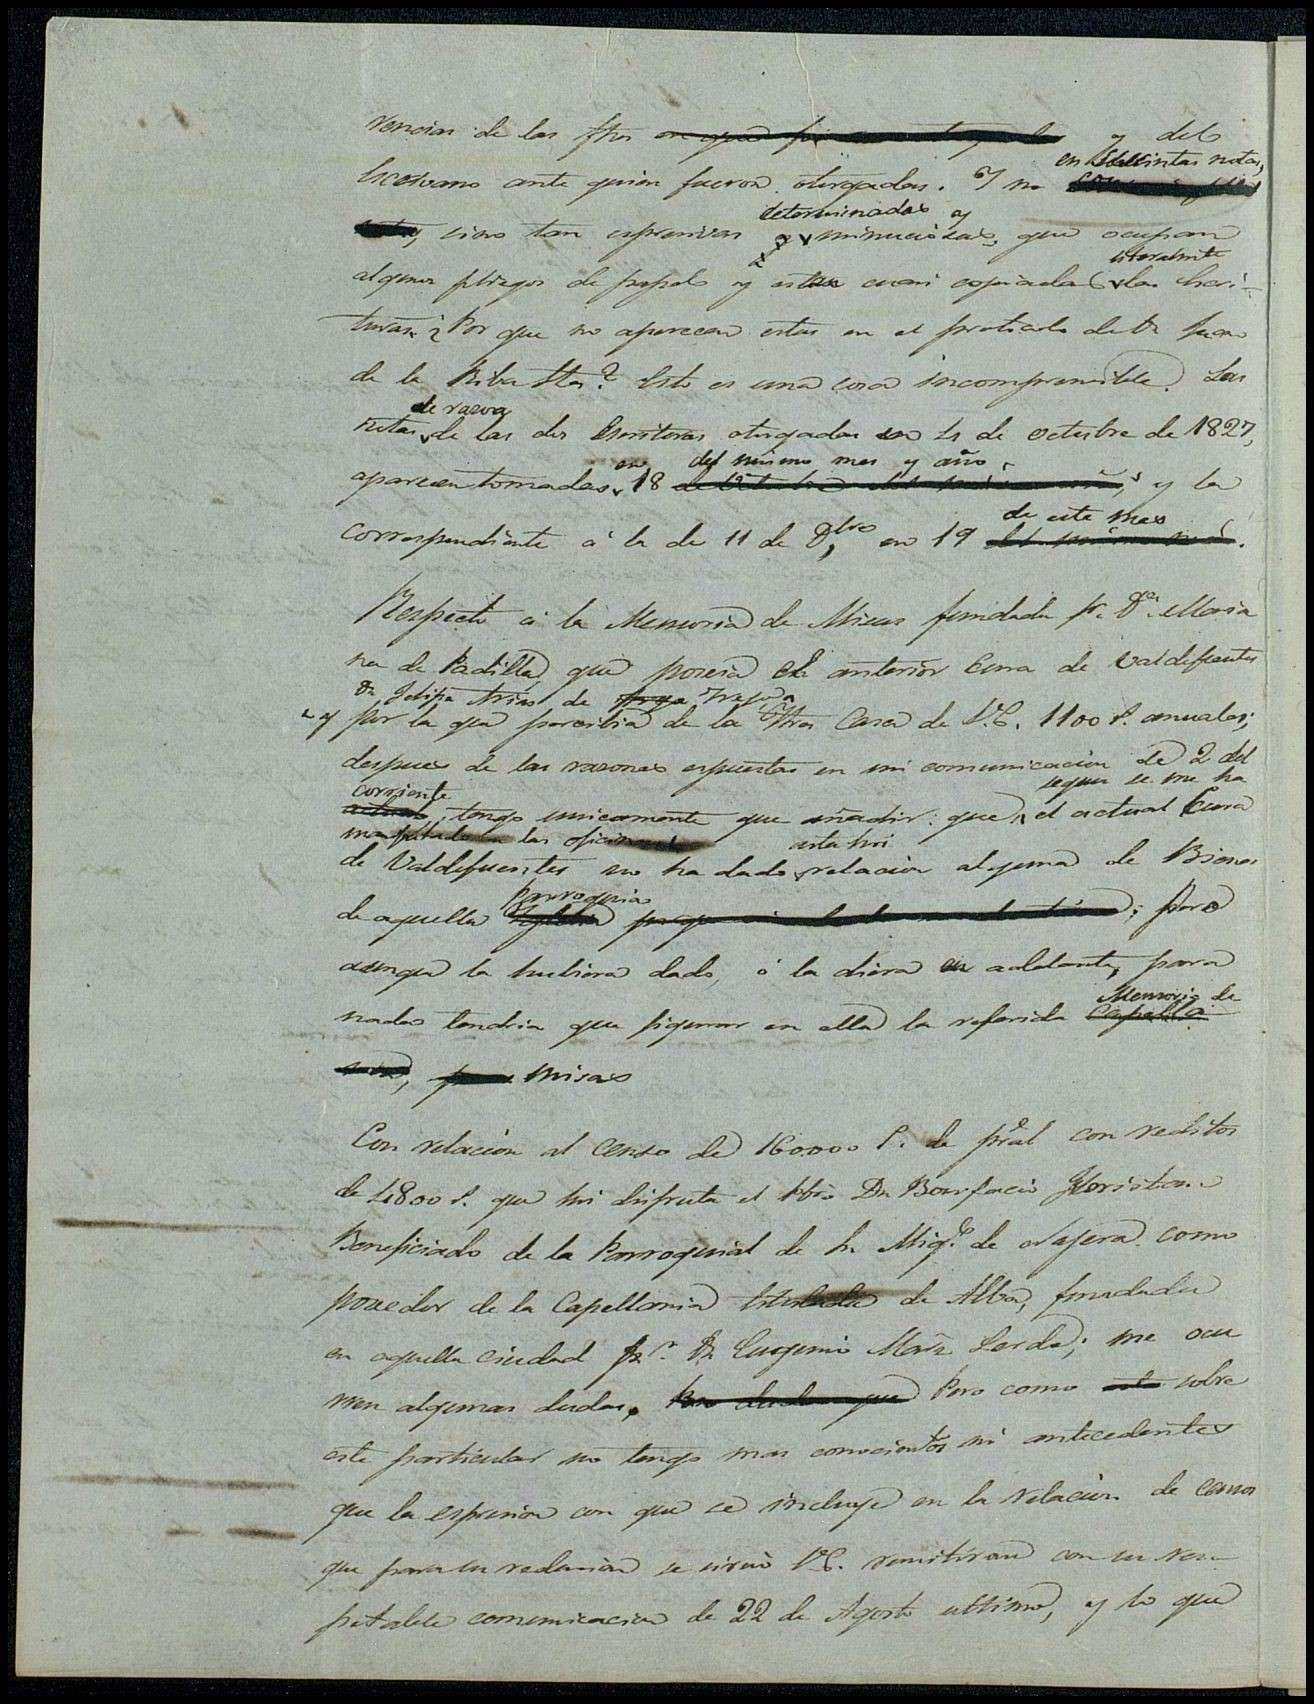 rencias de las fhas y del
en distintas notas,
Escrivano ante quien fueron otorgadas. Y no
determinadas y
sino tan espresivas y minuciosas, que ocupan
literalmte
algunos pliegos de papel y estan cuasi copiadas las Escri-
turas. ¿Por que no aparecen estas en el protocolo de Dn Juan
de la Riba Hta? Esto es una cosa incomprensible. Las
de razon
notas de las dos Escrituras otorgadas en 4 de octubre de 1827,
en del mismo mes y año
aparecen tomadas 18 y la
de este mes
correspondiente á la de 11 de Dbre en 19
Respecto á la Memoria de Misas fundada pr Da. Maria
na de Padilla, que poseia el anterior Cura de Valdefuentes
Dn Felipe Arias de
y por la que percibia de la Casa de V.E. 1100 r. anuales;
despues de las razones espuestas en mi comunicacion de 2 del
corriente segun se me ha
actual, tengo unicamente que añadir: que el actual Cura
manifestado en las oficinas
asta hoi
de Valdefuentes no ha dado relacion alguna de Bienes
Parroquia
de aquella Iglesia ; pero
aunque la hubiera dado, ó la diera en adelante, para
Memoria de
nada tendria que figurar en ella la referida Capella
misas
Con relacion al censo de 160000 r. de pral con reditos
de 4800 r. que hoi disfruta el Pbro Dn Bonifacio Floristan
Beneficiado de la Parroquial de Sn Migl de Najera como
poseedor de la Capellania titulada de Alba, fundada
en aquella ciudad pr Dn Eugenio Marz Lerda; me ocu
rren algunas dudas. Pero como sobre
este particular no tengo mas conocientos ni antecedentes
que la espresion con que se incluye en la relacion de censos
que para su redencion se sirvió V.E. remitirme con su res-
petable comunicacion de 22 de Agosto ultimo, y lo que